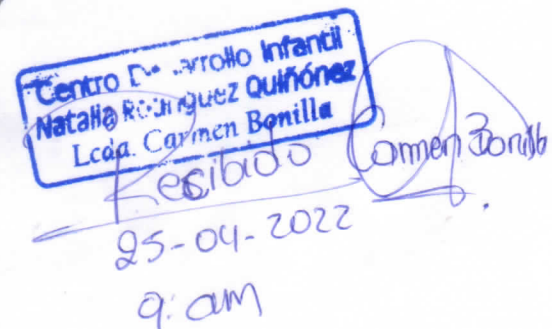 Centro Desarrollo Infantil
Natalia Rodriguez Quiñónez
Lcda. Carmen Bonilla
Recibido Carmen Bonilla
25-04-2022
9: am